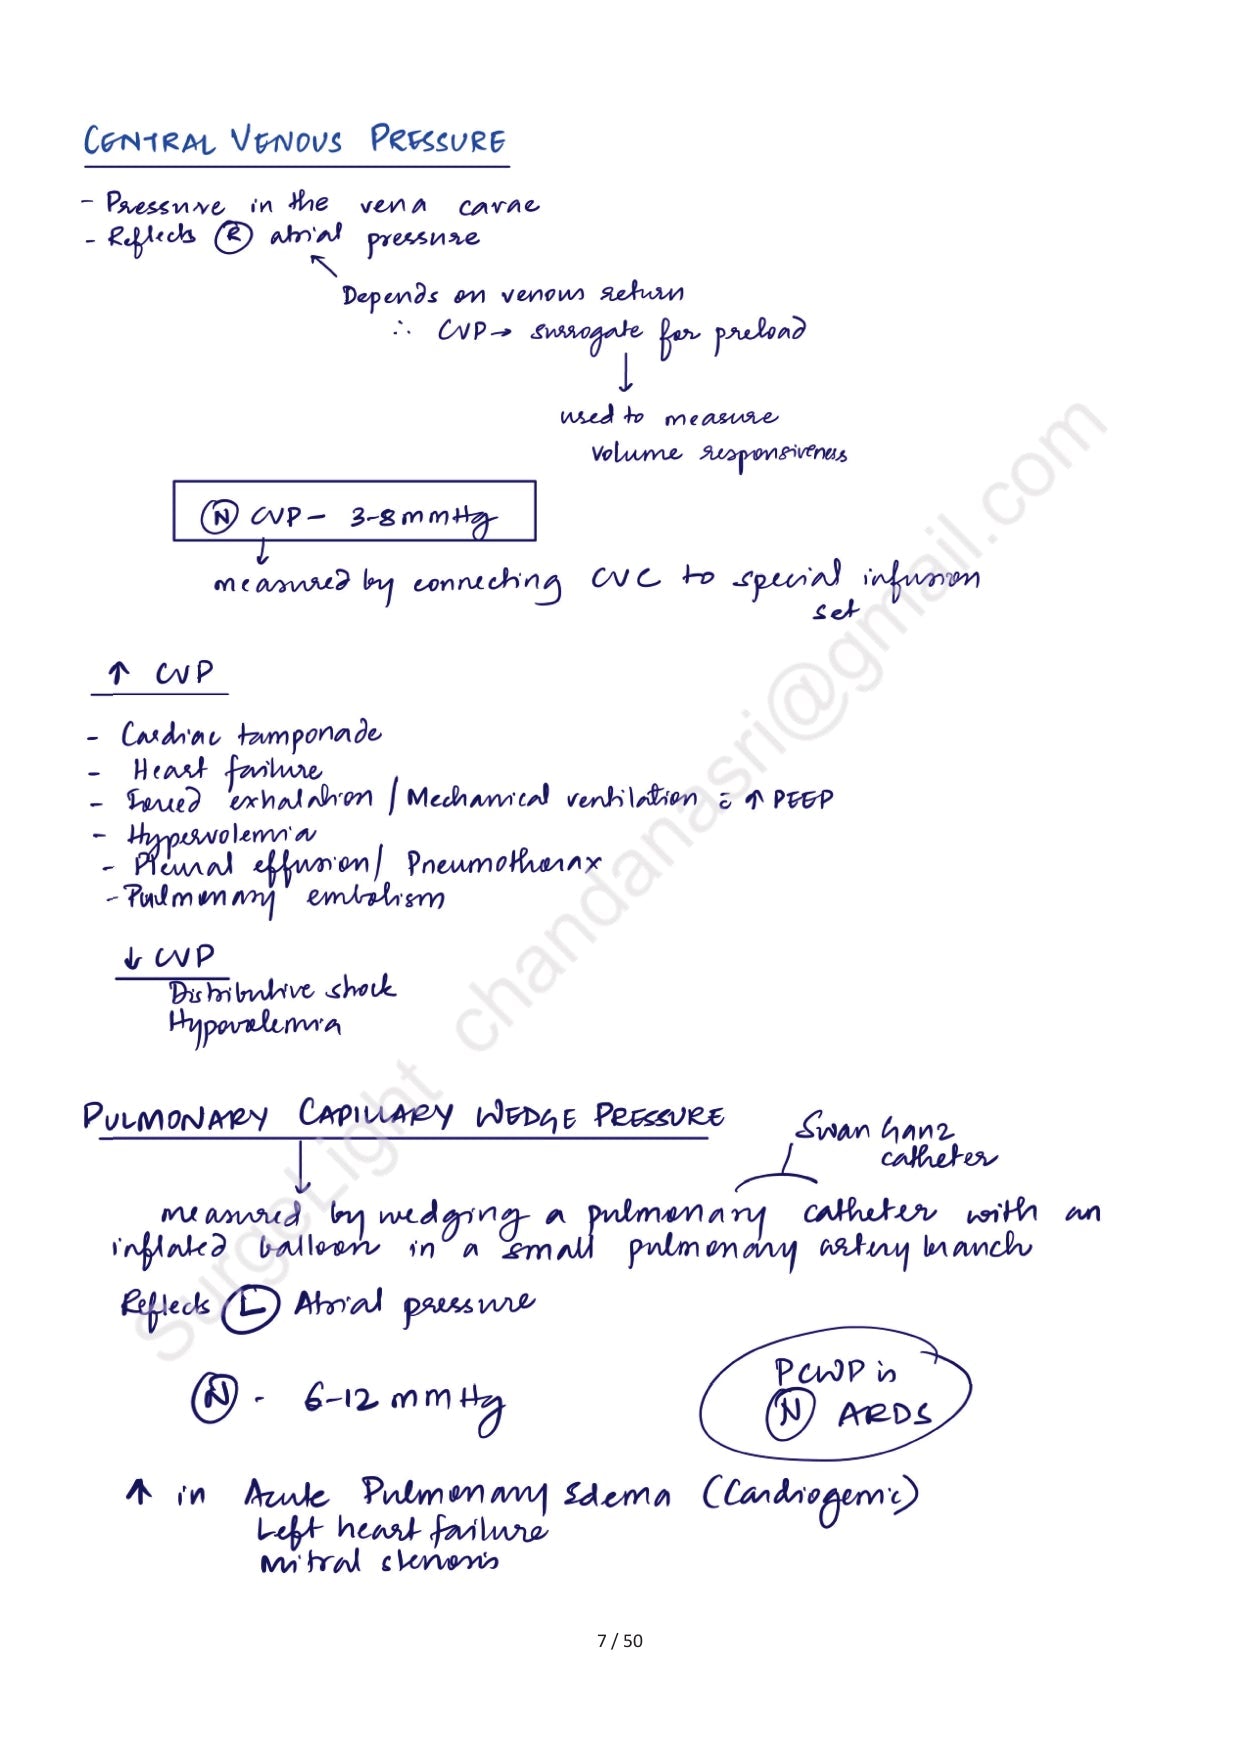 CENTRAL VENOUS PRESSURE
- Pressure in the vena cavae
- Reflects Ⓡ atrial pressure
Depends on venous return
∴ CVP → surrogate for preload
↓
used to measure
volume responsiveness
Ⓝ CVP - 3-8 mmHg
↓
measured by connecting CVC to special infusion
set
↑ CVP
- Cardiac tamponade
- Heart failure
- Forced exhalation / Mechanical ventilation c̄ ↑ PEEP
- Hypervolemia
- Pleural effusion / Pneumothorax
- Pulmonary embolism
↓ CVP
Distributive shock
Hypovolemia
PULMONARY CAPILLARY WEDGE PRESSURE
Swan Ganz
catheter
measured by wedging a pulmonary catheter with an
inflated balloon in a small pulmonary artery branch
Reflects Ⓛ Atrial pressure
Ⓝ - 6-12 mmHg
PCWP in
Ⓝ ARDS
↑ in Acute Pulmonary Edema (Cardiogenic)
Left heart failure
Mitral stenosis
SurgeLight chandanasri@gmail.com
7 / 50